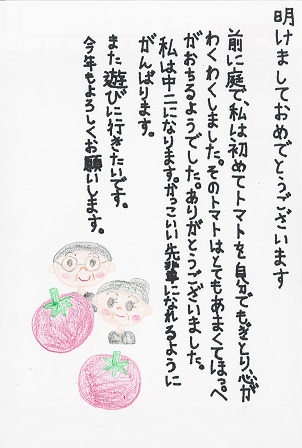 明けましておめでとうございます
前に庭で、私は初めてトマトを自分でもぎとり、心が
わくわくしました。そのトマトはとてもあまくてほっぺ
がおちるようでした。ありがとうございました。
私は中二になります。かっこいい先輩になれるように
がんばります。
また遊びに行きたいです。
今年もよろしくお願いします。